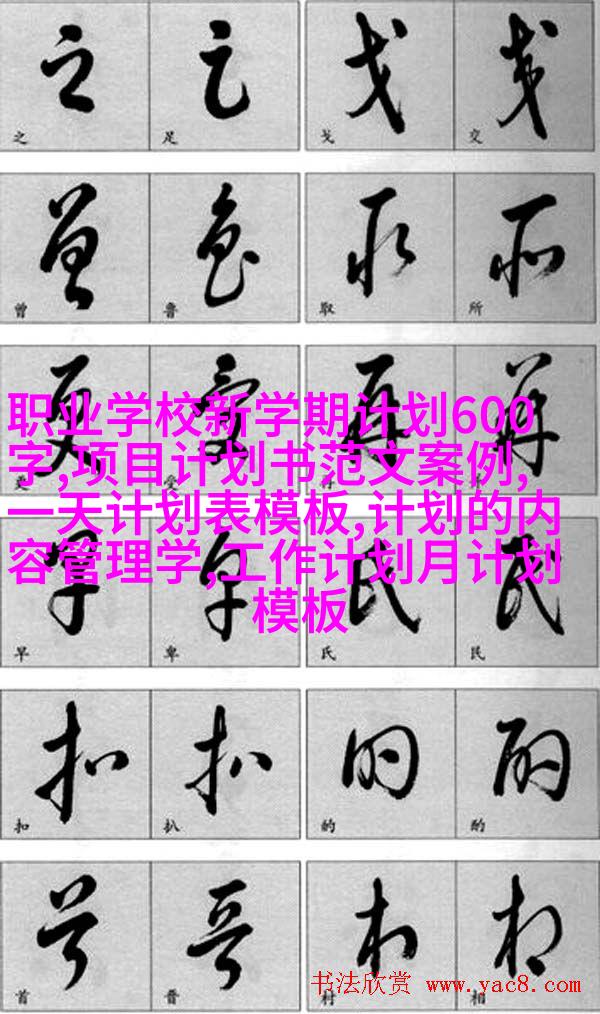 之 足 戈 交
曾 鲁 取 所
职业学校新学期计划600
字,项目计划书范文案例,
更 受
一天计划表模板,计划的内
容管理学,工作计划月计划
模板
早 卑 氏 民
扣 扒 的 酌
书法欣赏 www.yac8.com
首 晋 村 相